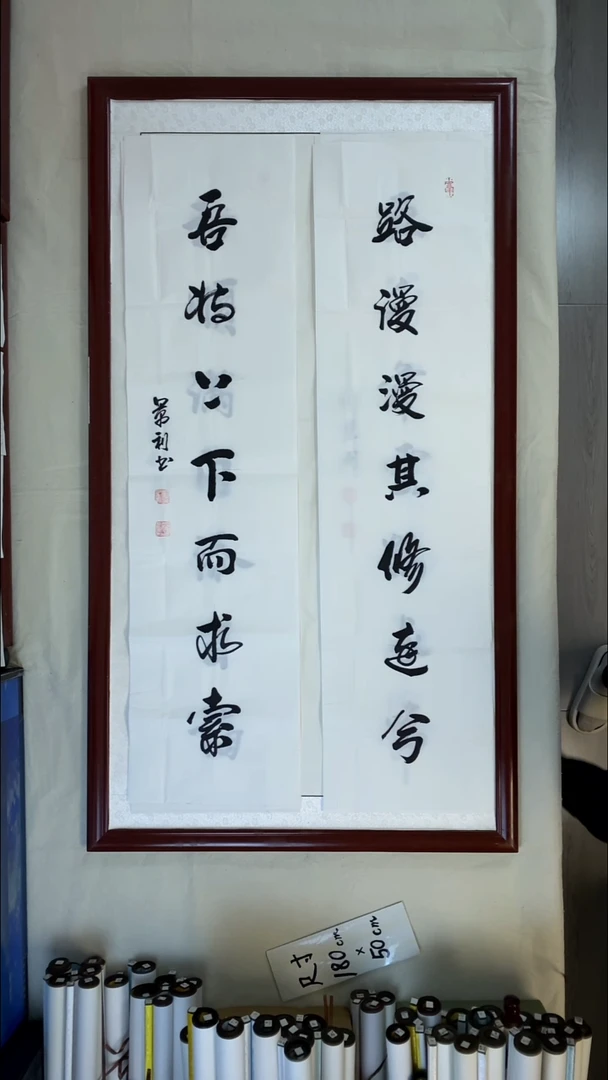 路漫漫其修遠兮
吾将上下而求索
利书
尺寸
180cm
×
50cm